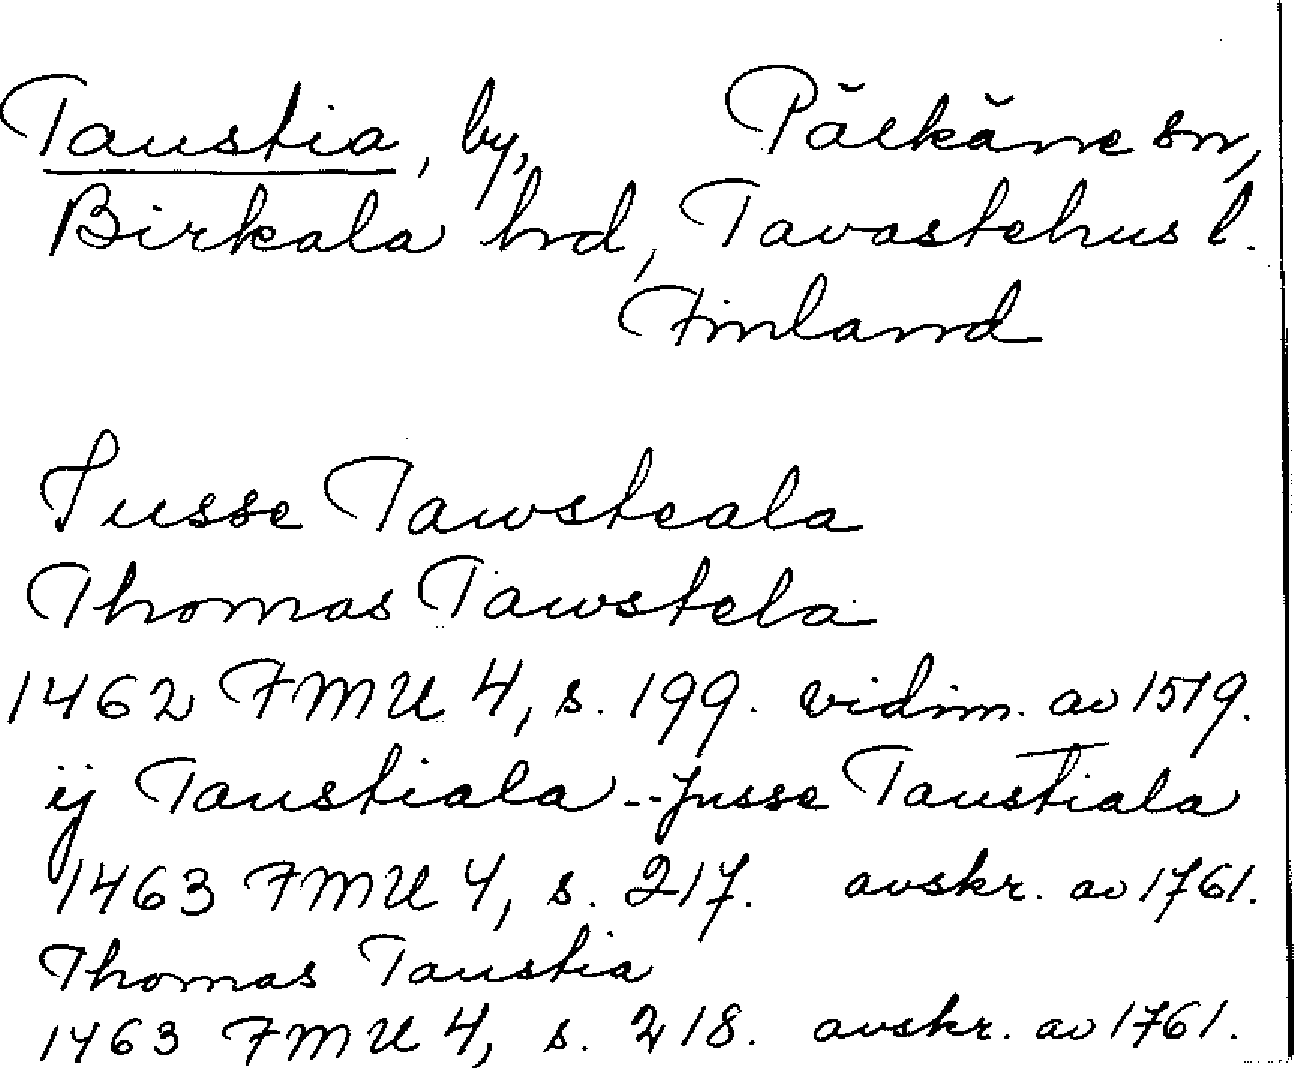 Taustia, by, Pälkäne sn,
Birkala hrd, Tavastehus l.
Finland
Jusse Tawsteala
Thomas Tawstela
1462 FMU 4, s. 199. vidim. av 1519.
ij Taustiala -- Jusse Taustiala
1463 FMU 4, s. 217. avskr. av 1761.
Thomas Taustia
1463 FMU 4, s. 218. avskr. av 1761.